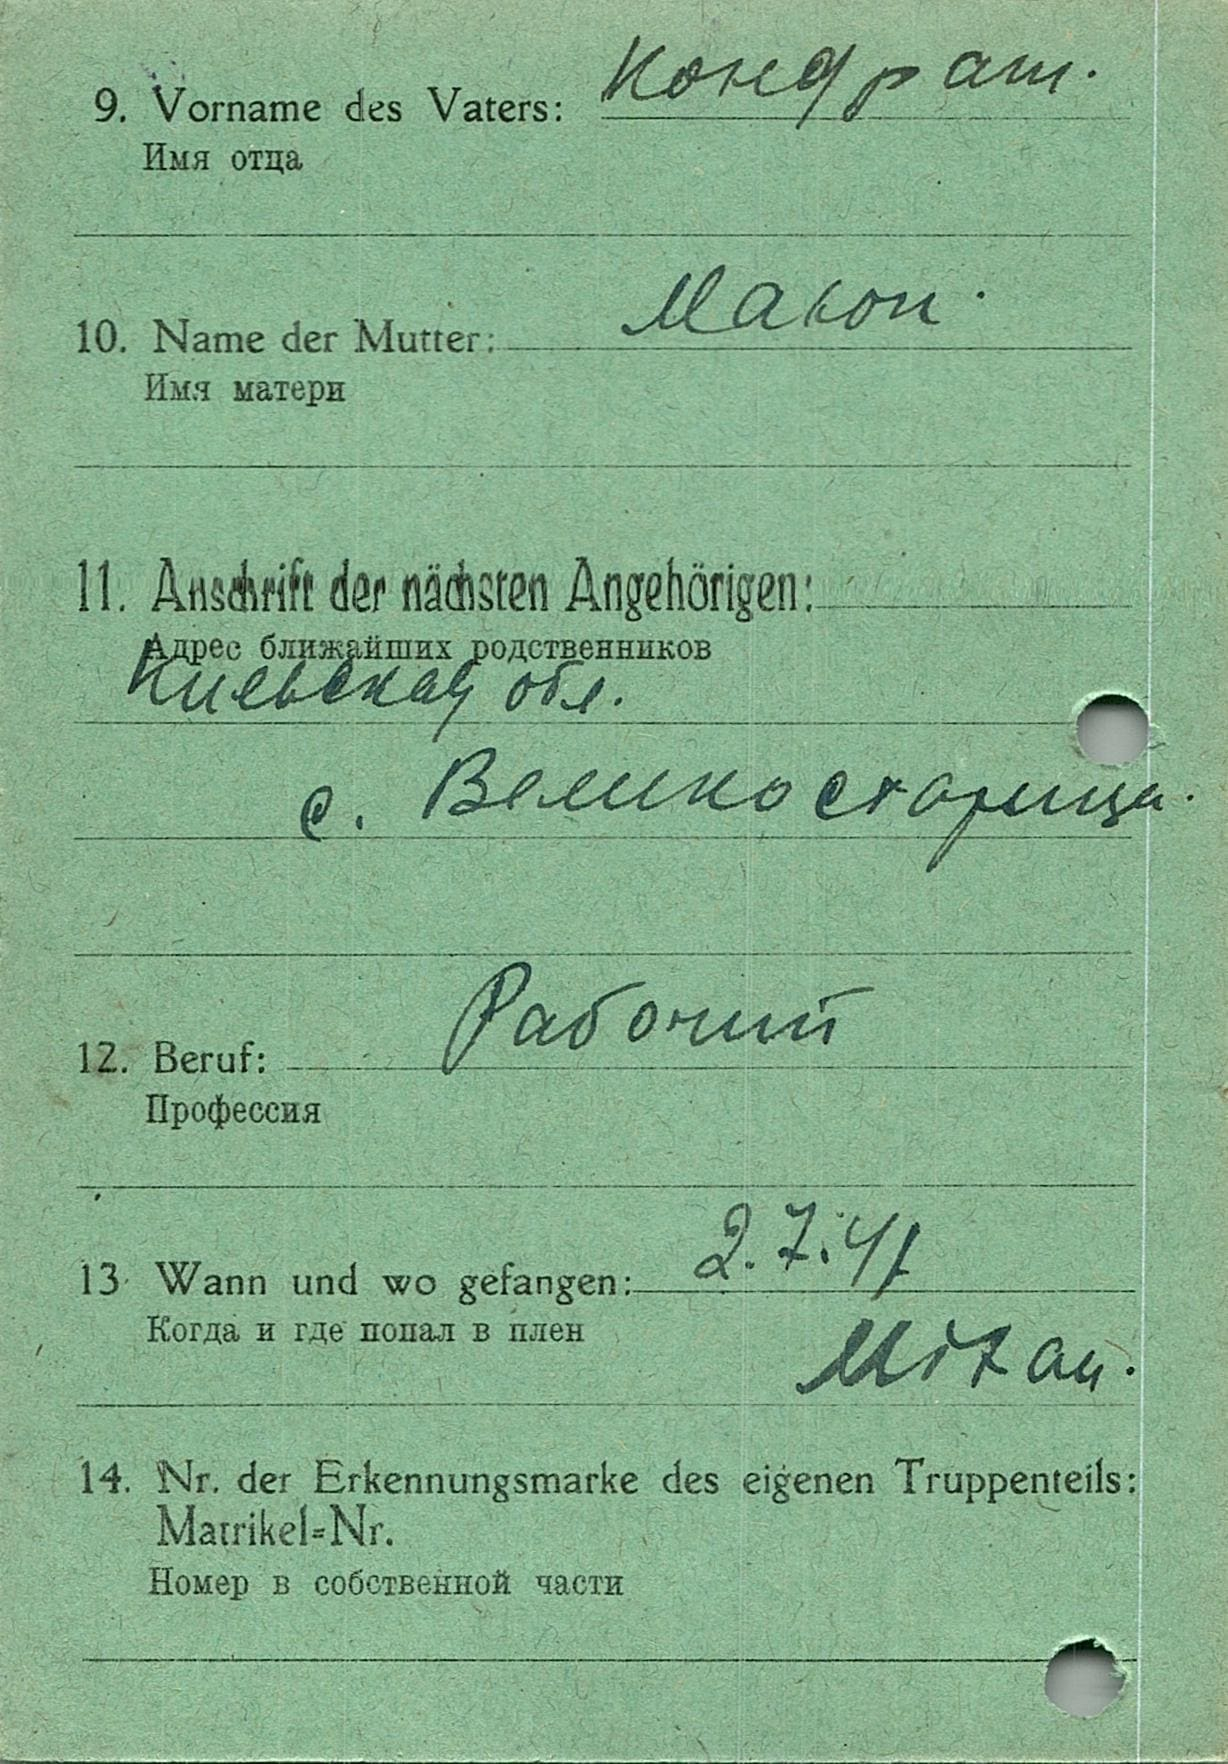 9. Vorname des Vaters: Кондрат.
Имя отца
10. Name der Mutter: Макоп.
Имя матери
11. Anschrift der nächsten Angehörigen:
Адрес ближайших родственников
Киевская обл.
с. Великостарица.
12. Beruf: Рабочий
Профессия
13 Wann und wo gefangen: 2.7.41
Когда и где попал в плен
Mitau.
14. Nr. der Erkennungsmarke des eigenen Truppenteils:
Matrikel=Nr.
Номер в собственной части